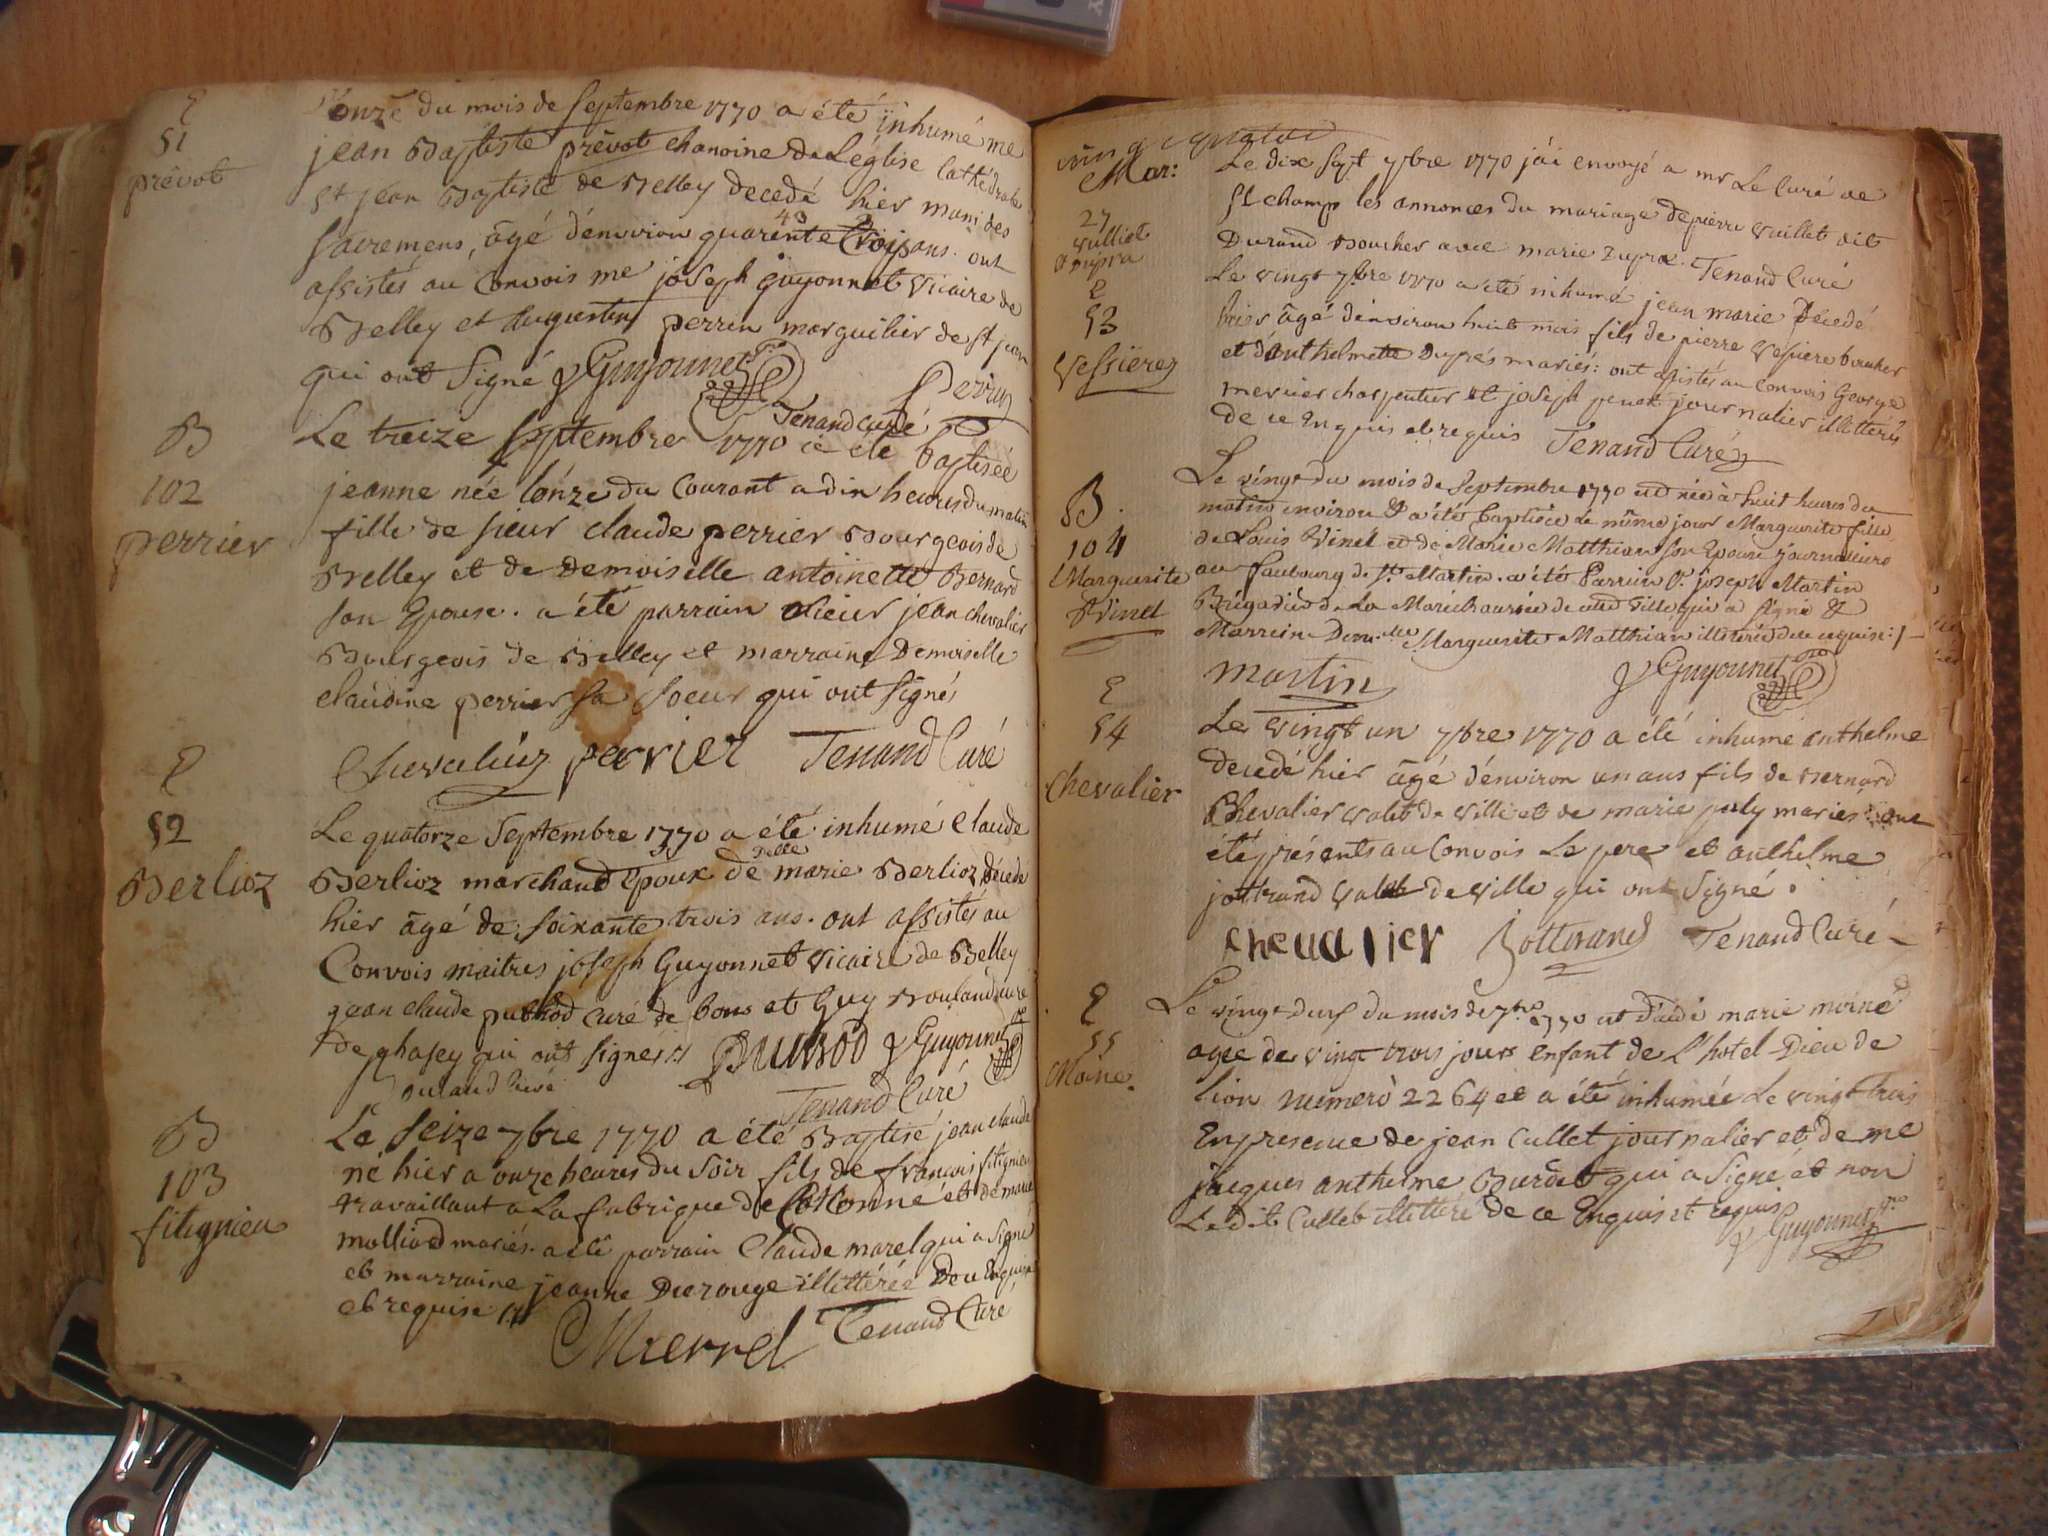 E
51
prévot
onze du mois de Septembre 1770 a été inhumé me
jean Baptiste prévot chanoine de L'église Cathédrale
St jean Baptiste de Belley decedé hier muni des
43
Sacremens, âgé d'environ quarente trois ans. ont
assistés au Convois me joseph Guyonnet vicaire de
Belley et augustin perrin marguilier de St jean
qui ont Signé Guyonnet
Perrin
Tenand curé
B
102
perrier
Le treize Septembre 1770 a été baptisée
jeanne née l'onze du Courant a dix heures du matin
fille de sieur claude perrier Bourgeois de
Belley et de Demoiselle antoinette Bernard
son Epouse. a été parrain sieur jean chevalier
Bourgeois de Belley et marraine Demoiselle
claudine perrier sa soeur qui ont signés
Chevalier perrier Tenand Curé
E
52
Berlioz
Le quatorze Septembre 1770 a été inhumé claude
Delle
Berlioz marchand Epoux de marie Berlioz, décédé
hier âgé de soixante trois ans. ont assistés au
Convois maitres joseph Guyonnet vicaire de Belley
jean claude puthod curé de bons et Guy Bouland curé
de ghasey qui ont signes
Puthod Guyonnet
Tenand Curé
B
103
fitignieu
Le Seize 7bre 1770 a été Baptisé jean claude
né hier a onze heures du soir fils de françois fitignieu
travaillant a La fabrique de Cottonne et de marie
molliard mariés. a été parrain Claude marel qui a Signé
et marraine jeanne Ducrouge illitterée De ce Enquise
et requise
Tenand Curé
Mar:
27
vulliet
dupra
Le dix sept 7bre 1770 j'ai envoyé a mr Le Curé de
St champ les annonces du mariage de pierre vuillet dit
Durand Boucher avec marie Dupra. Tenand Curé
E
53
Vessiere
Le vingt 7bre 1770 a été inhumé jean marie Décedé
hier âgé d'environ huit mois fils de pierre Vesiere boucher
et d'anthelmette Duprés mariés: ont assistés au Convois George
mercier charpentier et joseph penet journalier illitterés
de ce Enquis et requis Tenand Curé
B
104
Marguerite
Vinet
Le vingt du mois de Septembre 1770 est née à huit heures du
matin environ & a été baptisée le même jour Marguerite fille
de Louis Vinet et de Marie Matthian son Epouse journaliers
au faubourg de St Martin. a été Parrein Sr joseph Martin
Brigadier de La Maréchaussée de cette ville qui a signé &
Marreine Demlle Marguerite Matthian illiterée de ce enquise
martin Guyonnet
E
54
Chevalier
Le vingt un 7bre 1770 a été inhumé anthelme
decedé hier âgé d'environ un ans fils de Bernard
Chevalier valet de ville et de marie july mariés: ont
été présents au Convois Le pere et anthelme
jottrand valet de ville qui ont Signé.
chevalier Jottrand Tenand Curé
E
55
Moine.
Le vingt deux du mois de 7bre 1770 est décédé marie moine
agée de vingt trois jours Enfant de L'hotel Dieu de
lion numerò 2264 et a été inhumée Le vingt trois
En presence de jean Cullet journalier et de me
jacques anthelme Burdet qui a Signé et non
Le dit Cullet illitteré de ce Enquis et requis
Guyonnet